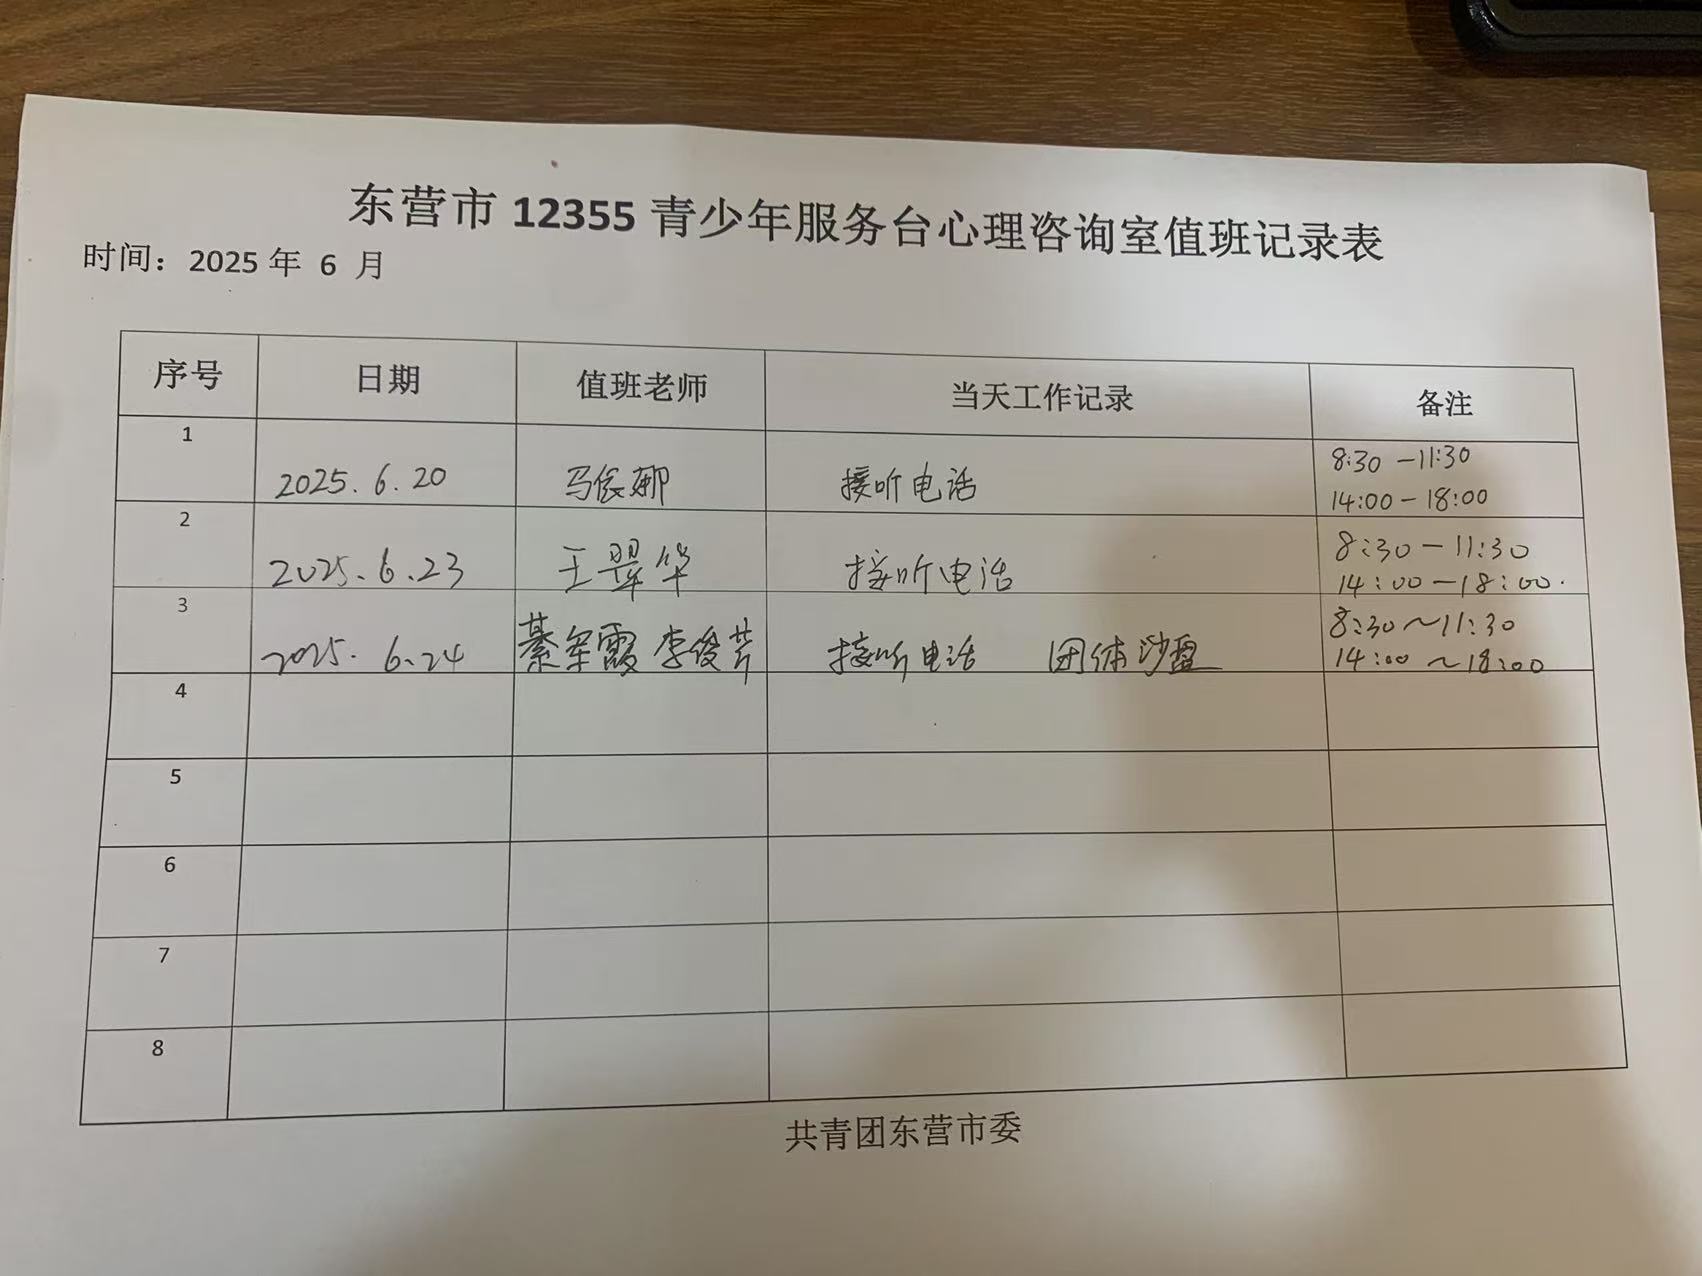 东营市 12355 青少年服务台心理咨询室值班记录表
时间：2025 年 6 月
序号 日期 值班老师 当天工作记录 备注
1 2025.6.20 马依娜 接听电话 8:30-11:30
14:00-18:00
2 2025.6.23 王翠华 接听电话 8:30-11:30
14:00-18:00.
3 2025.6.24 綦军霞 李俊芹 接听电话 团体沙盘 8:30~11:30
14:00~18:00
4
5
6
7
8
共青团东营市委